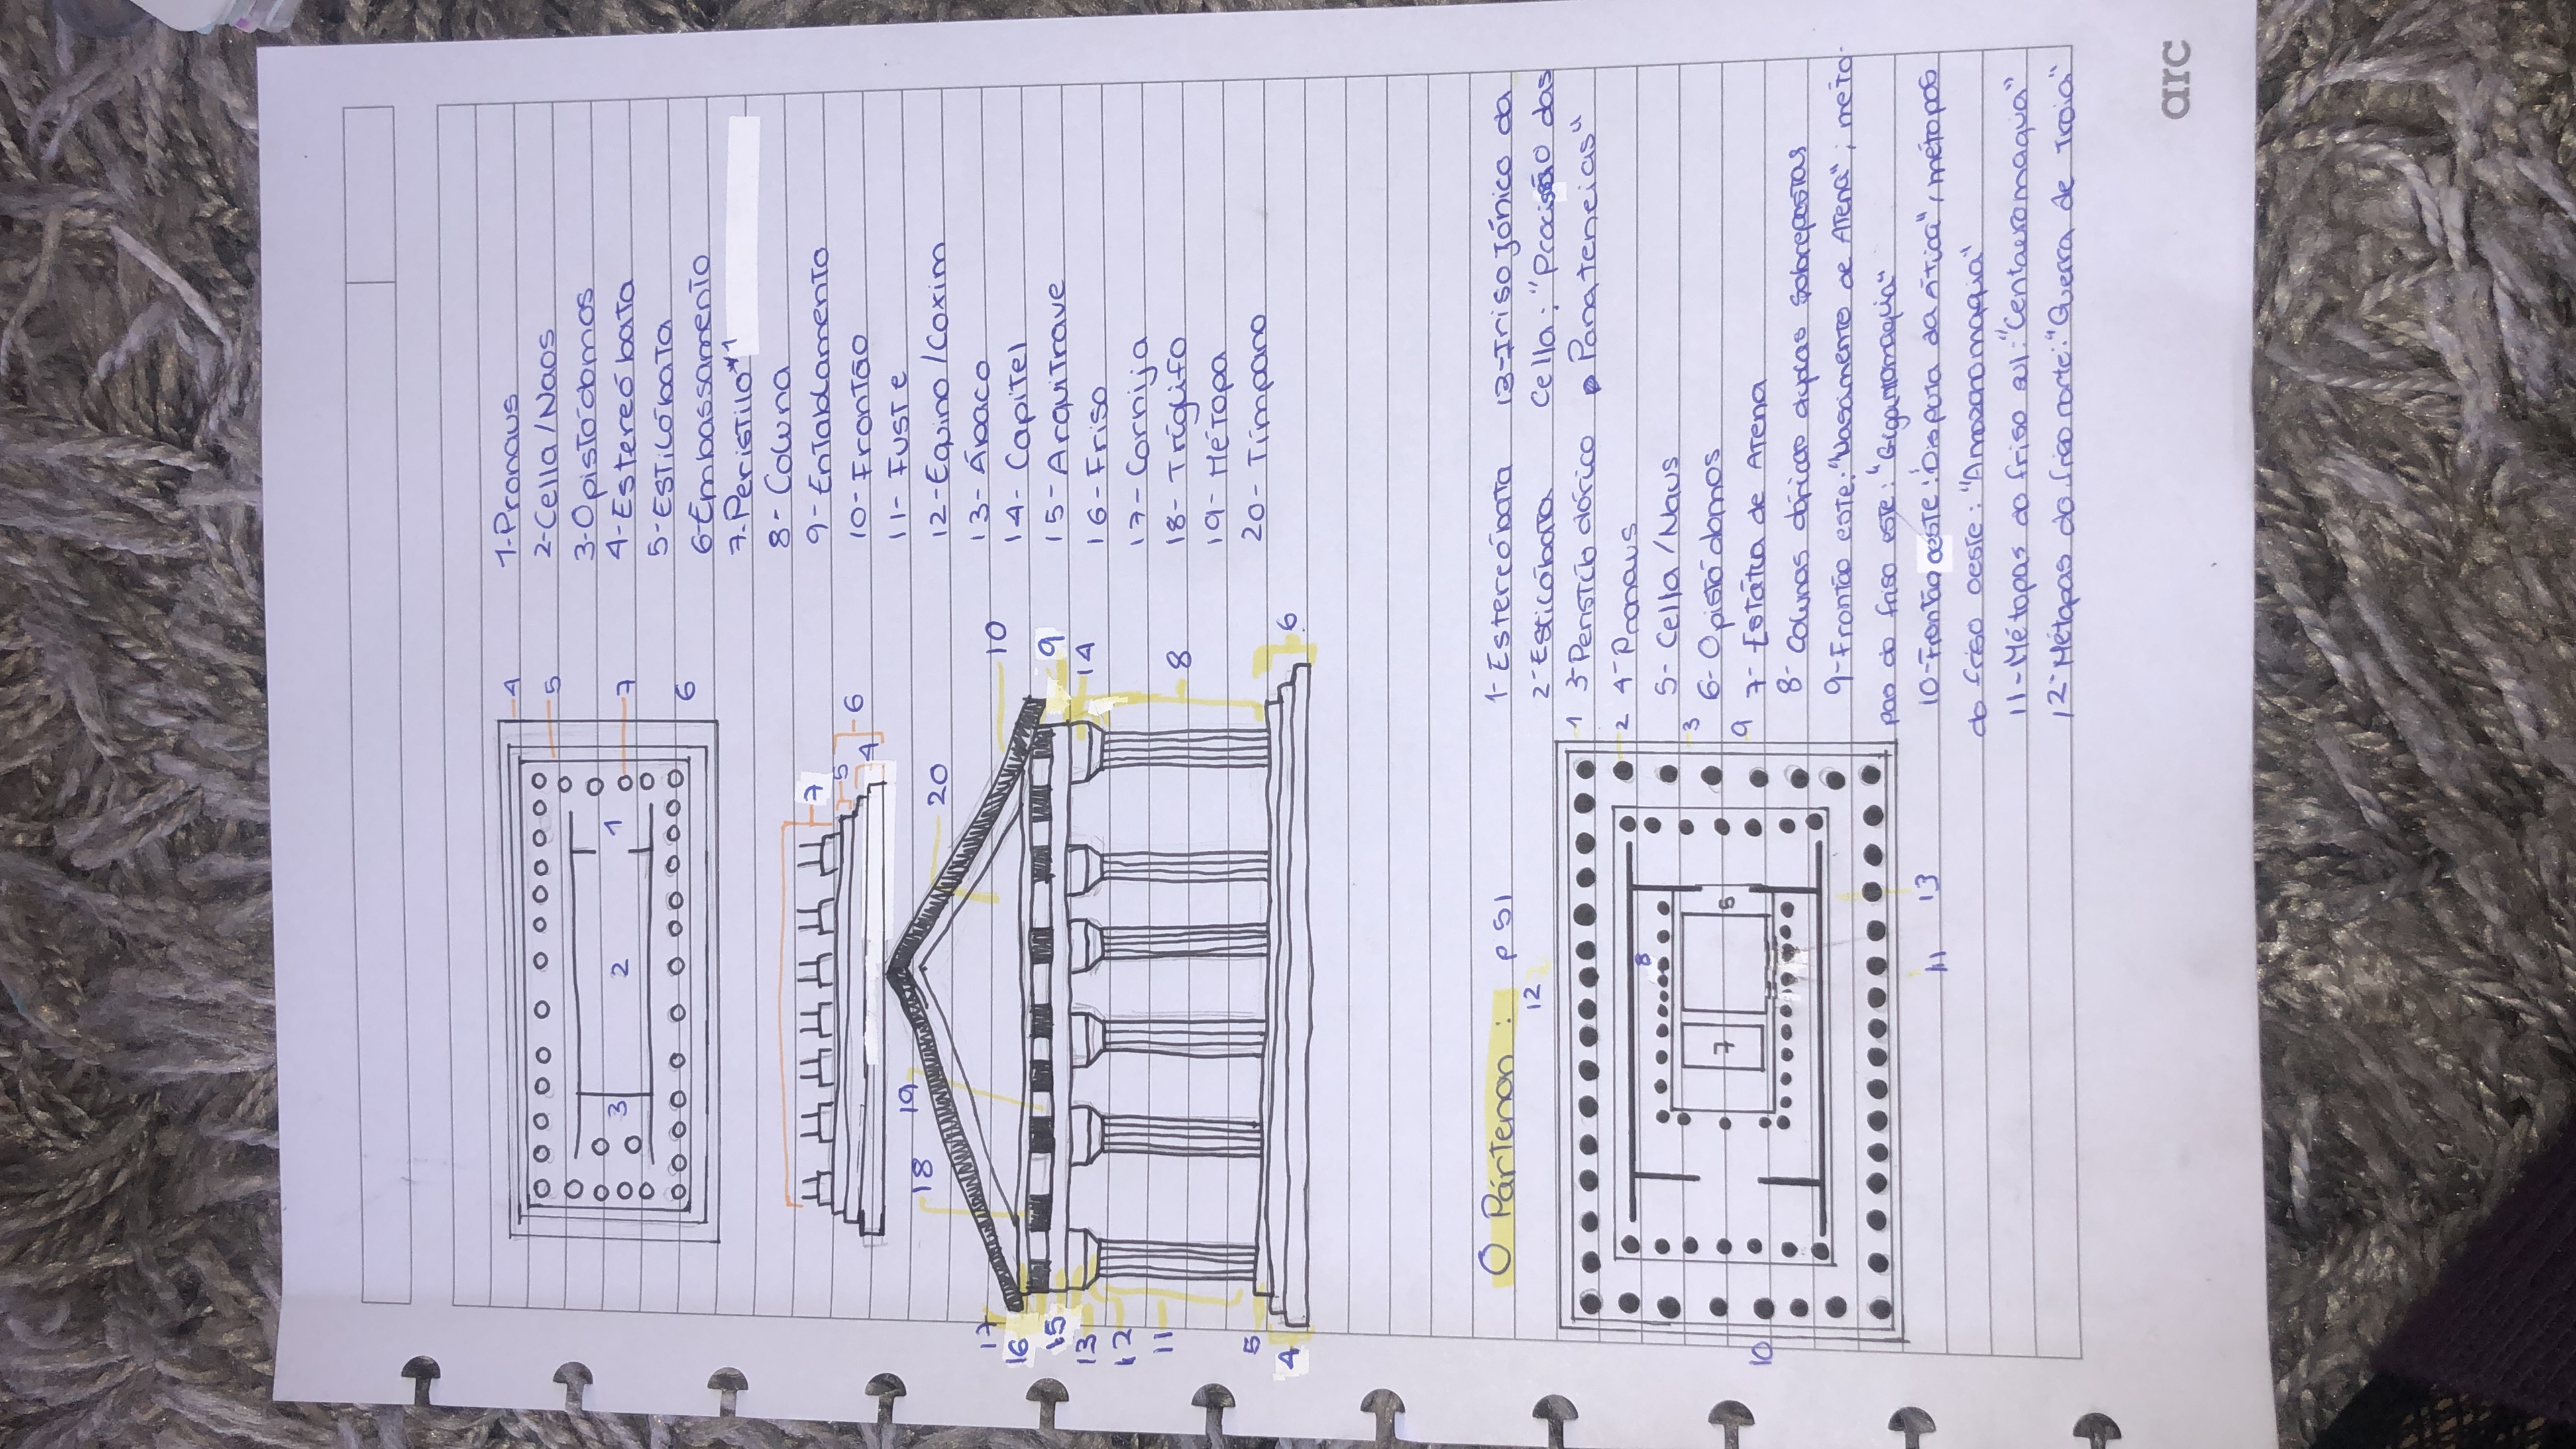 4
5
3
2
1
7
6
1-Pronaus
2-Cella/Naos
3-Opistódomos
4-Estereóbata
5-Estilóbata
6-Embassamento
7-Peristilo*1
8- Coluna
9-Entablamento
10- Frontão
11- Fuste
12-Equino/Coxim
13- Ábaco
14- Capitel
15-Arquitrave
16-Friso
17-Cornija
18- Tríglifo
19- Métopa
20- Tímpano
7
5
6
4
18
19
20
17
10
16
15
9
13
14
12
11
8
5
4
6
O Pártenon: p 51
12
1
2
8
3
7
5
9
10
11
13
1- Estereóbata
2-Estilóbata
3-Peristilo dórico
4-Pronaus
5- Cella/Naus
6- Opistódomos
7- Estátua de Atena
8- Colunas dóricas duplas sobrepostas
9-Frontão este: "Nascimento de Atena"; méto-
pas do friso este: "Gigantomaquia"
10-Frontão oeste: "Disputa da Ática", métopas
do friso oeste: "Amazonomaquia"
11-Métopas do friso sul: "Centauromaqua"
12-Métopas do friso norte: "Guerra de Troia"
13-Friso Jónico da
Cella: "Procissão das
Panateneias"
arc